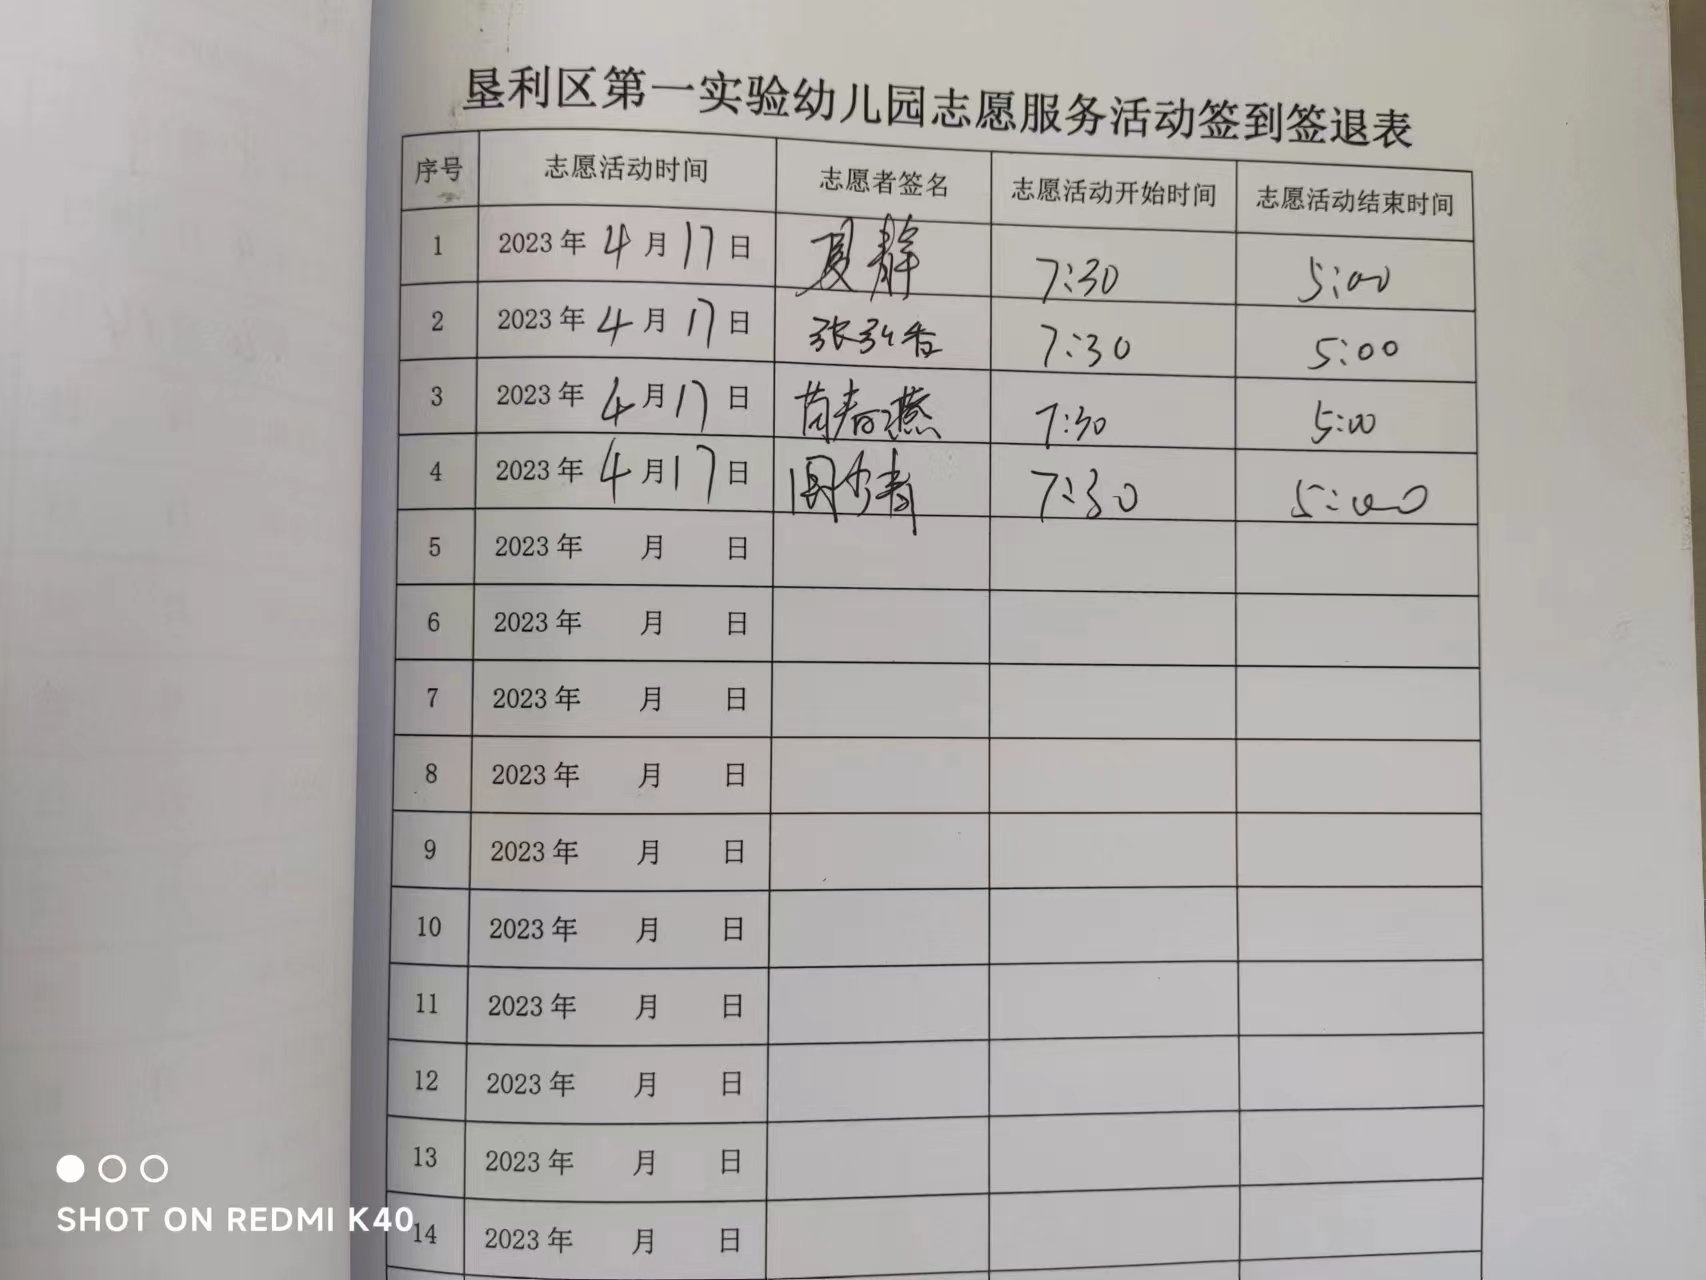 垦利区第一实验幼儿园志愿服务活动签到签退表
序号 志愿活动时间 志愿者签名 志愿活动开始时间 志愿活动结束时间
1 2023年 4月17日 夏静 7:30 5:00
2 2023年 4月17日 7:30 5:00
3 2023年 4月17日 春燕 7:30 5:00
4 2023年 4月17日 7:30 5:00
5 2023年 月 日
6 2023年 月 日
7 2023年 月 日
8 2023年 月 日
9 2023年 月 日
10 2023年 月 日
11 2023年 月 日
12 2023年 月 日
13 2023年 月 日
14 2023年 月 日
SHOT ON REDMI K40